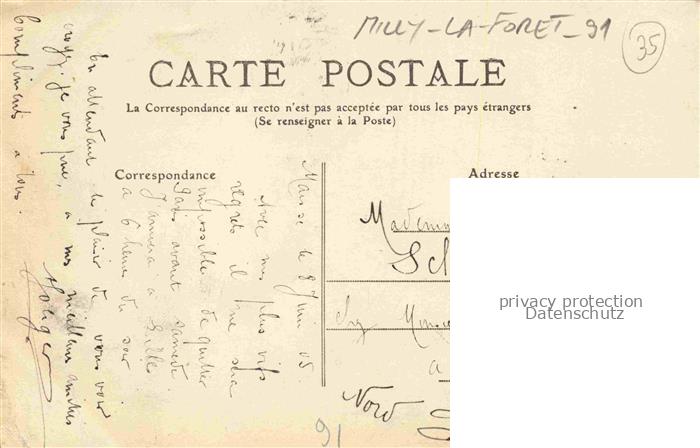 MILLY-LA-FORET_91
35
CARTE POSTALE
La Correspondance au recto n'est pas acceptée par tous les pays étrangers
(Se renseigner à la Poste)
Correspondance
Adresse
Maisse le 8 Juin 05.
Avec mes plus vifs
regrets il me sera
impossible de quitter
Paris avant samedi.
J'arriverai à Lille
à 6 heures du soir
En attendant le plaisir de vous voir
croyez, je vous prie, à mes meilleures amitiés
Compliments à tous.
Madem
Sc
Chez Monsie
a
Nord
91
privacy protection
Datenschutz